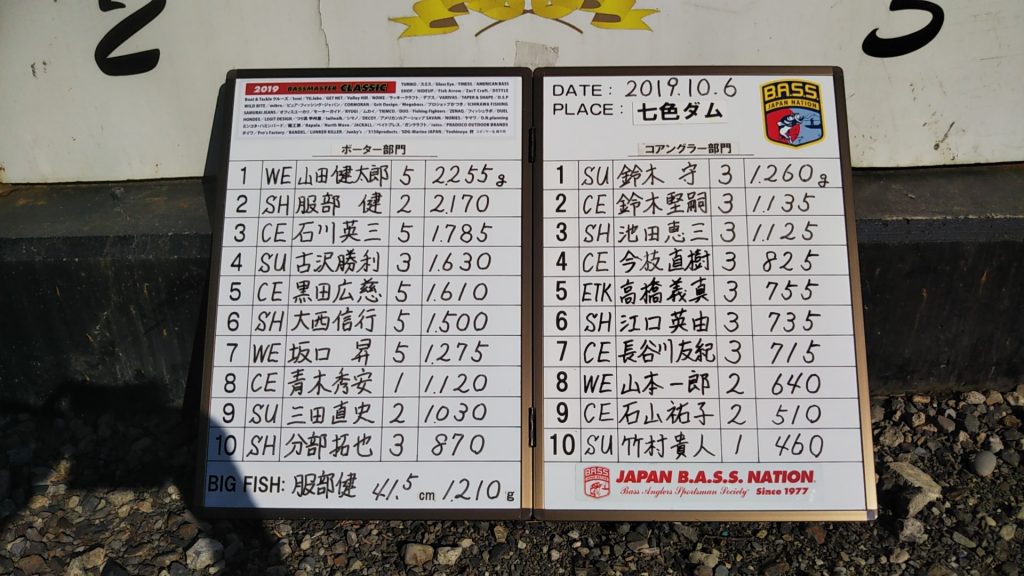 2
5
2019 BASSMASTER CLASSIC
ボーター部門
1 WE 山田健太郎 5 2.255g
2 SH 服部 健 2 2.170
3 CE 石川英三 5 1.785
4 SU 古沢勝利 3 1.630
5 CE 黒田広慈 5 1.610
6 SH 大西信行 5 1.500
7 WE 坂口 昇 5 1.275
8 CE 青木秀安 1 1.120
9 SU 三田直史 2 1030
10 SH 分部拓也 3 870
BIG FISH: 服部健 41.5 cm 1.210 g
DATE: 2019.10.6
PLACE: 七色ダム
BASS
JAPAN NATION
コアングラー部門
1 SU 鈴木 守 3 1.260g
2 CE 鈴木堅嗣 3 1.135
3 SH 池田恵三 3 1.125
4 CE 今枝直樹 3 825
5 ETK 高橋義真 3 755
6 SH 江口英由 3 735
7 CE 長谷川友紀 3 715
8 WE 山本一郎 2 640
9 CE 石山祐子 2 510
10 SU 竹村貴人 1 460
BASS
JAPAN B.A.S.S. NATION
Bass Anglers Sportsman Society Since 1977